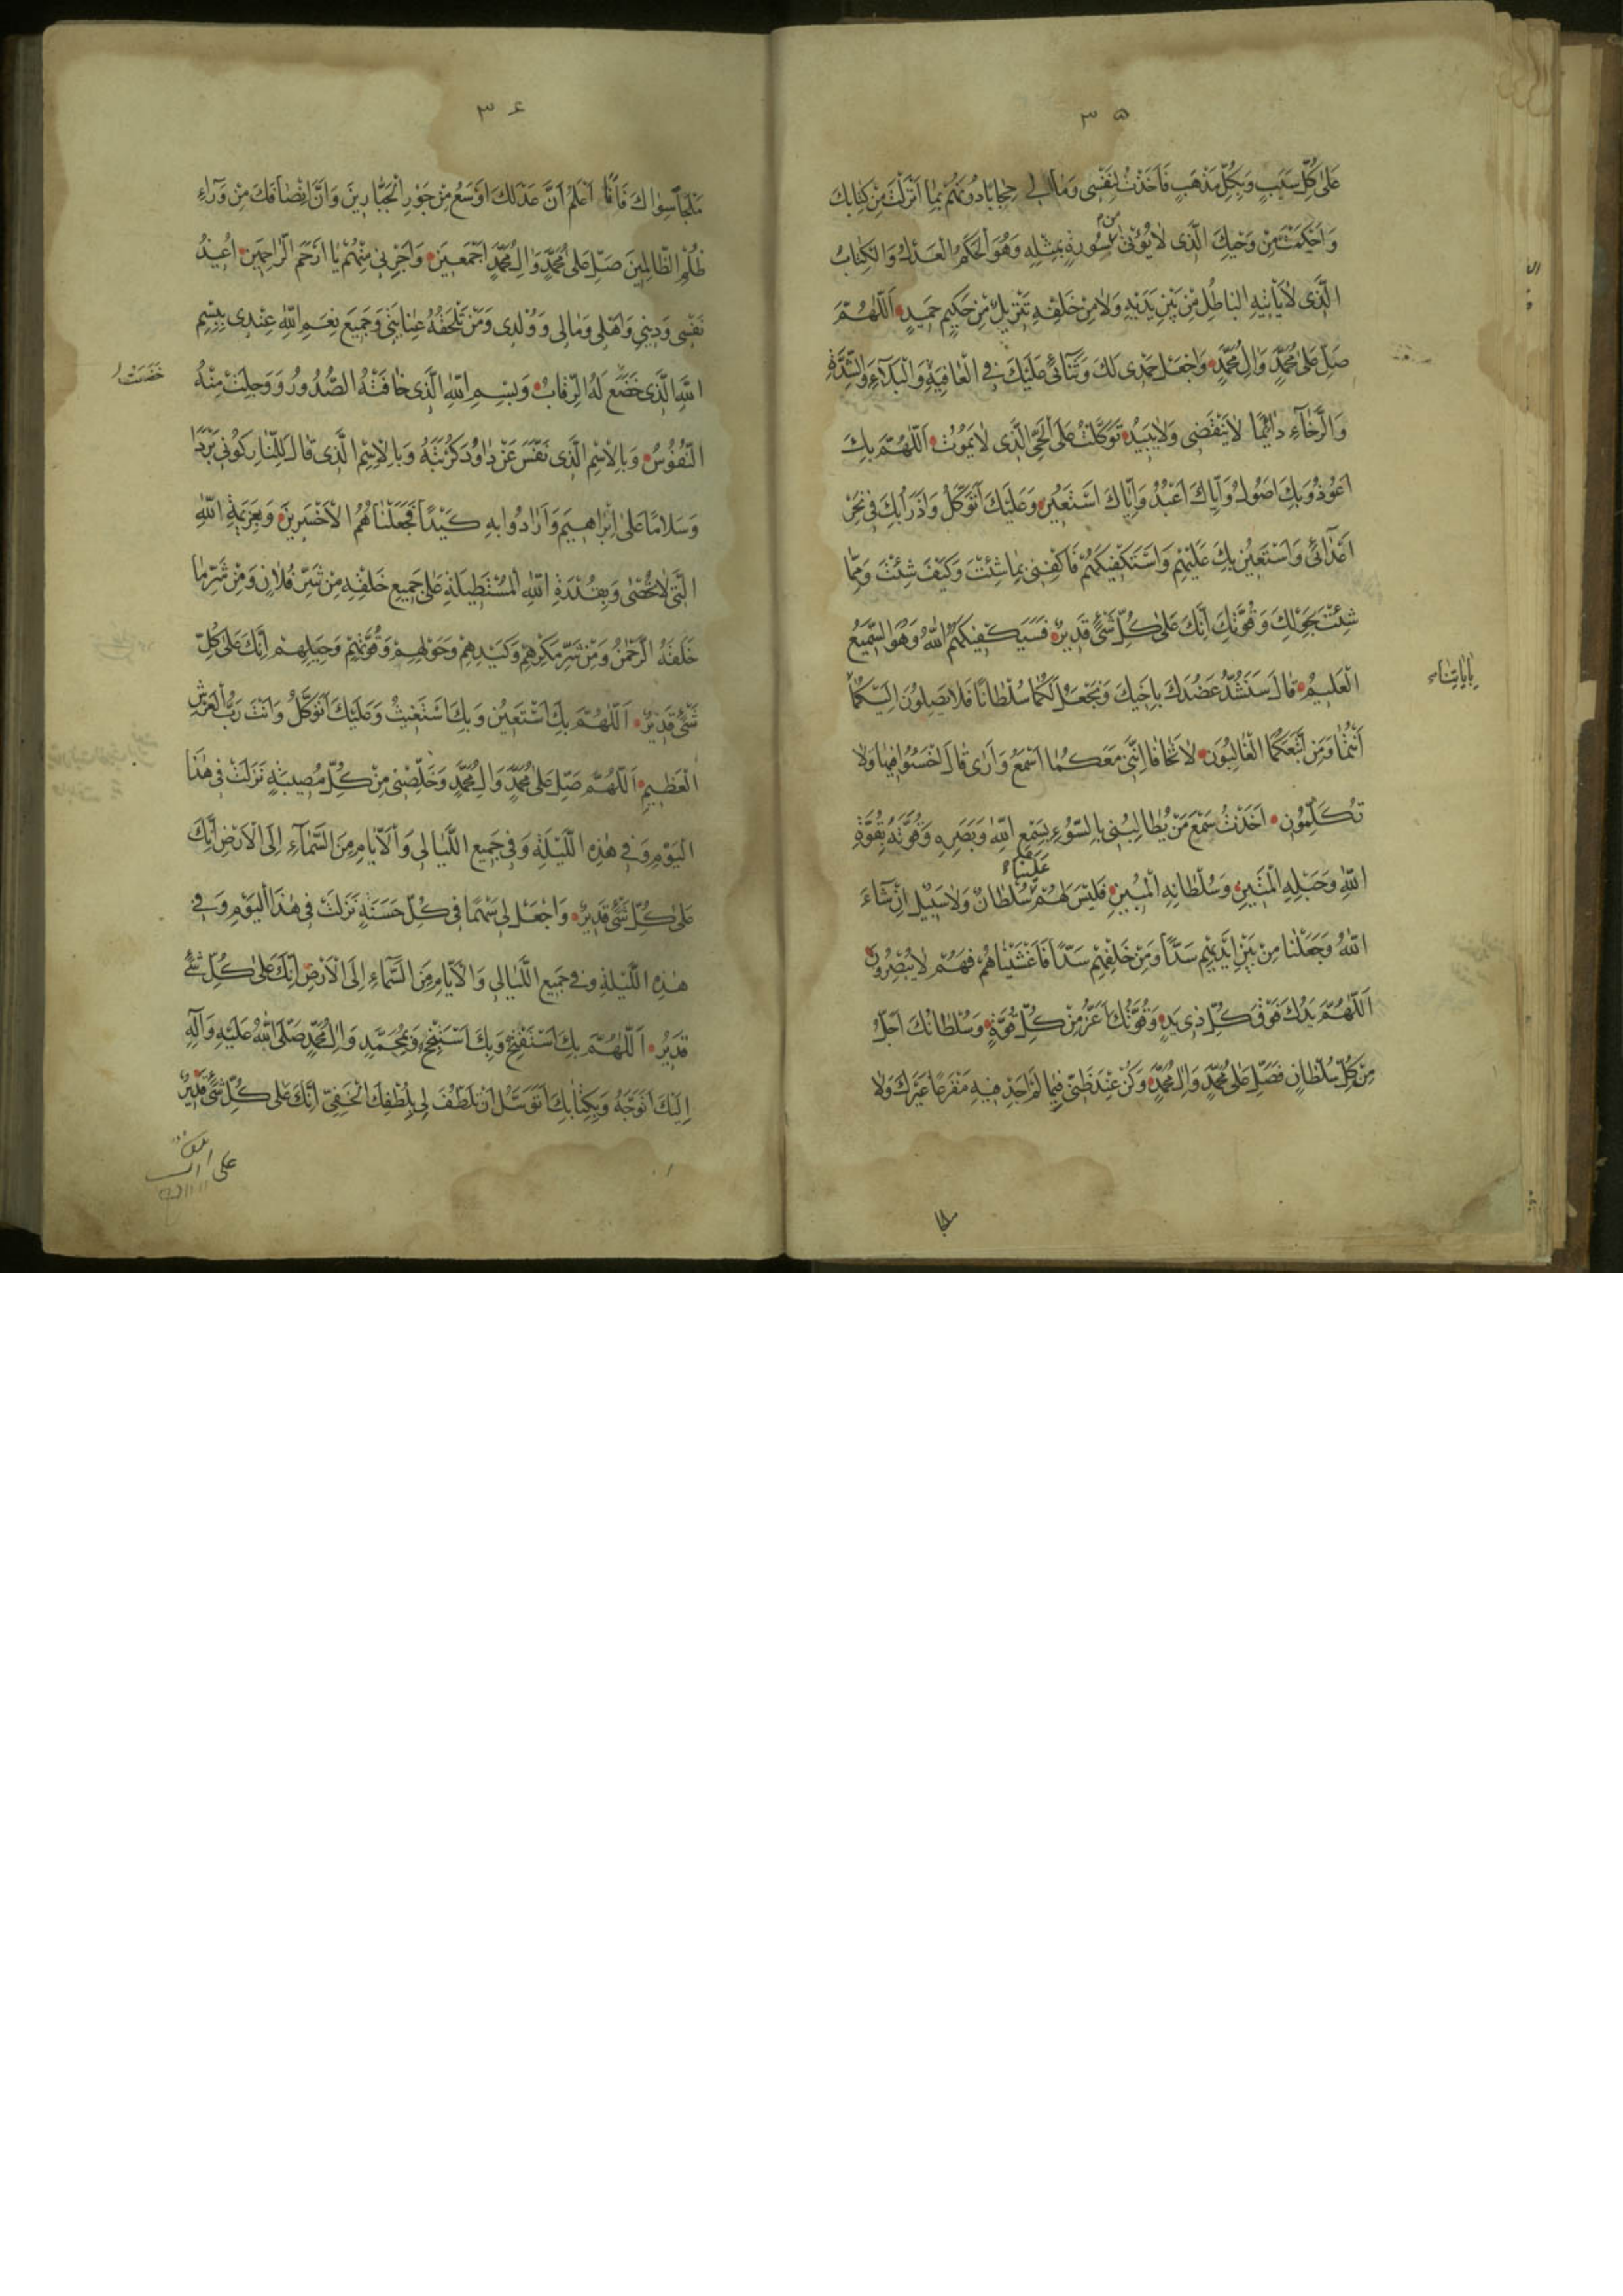 ۳۵
عَلىٰ كُلِّ سَبَبٍ وَبِكُلِّ مَذْهَبٍ فَاَخَذْتُ لِنَفْسى وَمٰالى حِجٰابًا دُونَهُمْ بِمٰا اَنْزَلْتَ مِنْ كِتٰابِكَ
وَاَحْكَمْتَ مِنْ وَحْيِكَ الَّذى لاٰ يُؤْتىٰ مِنْ سُورَةٍ بِمِثْلِهِ وَهُوَ الْحَكَمُ الْعَدْلُ وَالْكِتٰابُ
الَّذى لاٰ يَأْتيهِ الْبٰاطِلُ مِنْ بَيْنِ يَدَيْهِ وَلاٰ مِنْ خَلْفِهِ تَنْزيلٌ مِنْ حَكيمٍ حَميدٍ اَللّٰهُمَّ
صَلِّ عَلىٰ مُحَمَّدٍ وَاٰلِ مُحَمَّدٍ وَاجْعَلْ حَمْدى لَكَ وَثَنٰائى عَلَيْكَ فِى الْعٰافِيَةِ وَالْبَلاٰءِ وَالشِّدَّةِ
وَالرَّخٰاءِ دٰائِمًا لاٰ يَنْقَضى وَلاٰ يَبيدُ تَوَكَّلْتُ عَلَى الْحَىِّ الَّذى لاٰ يَمُوتُ اَللّٰهُمَّ بِكَ
اَعُوذُ وَبِكَ اَصُولُ وَاِيّٰاكَ اَعْبُدُ وَاِيّٰاكَ اَسْتَعينُ وَعَلَيْكَ اَتَوَكَّلُ وَاَدْرَأُ بِكَ فى نَحْرِ
اَعْدٰائى وَاَسْتَعينُ بِكَ عَلَيْهِمْ وَاَسْتَكْفيكَهُمْ فَاكْفِنى بِمٰا شِئْتَ وَكَيْفَ شِئْتَ وَمِمّٰا
شِئْتَ بِحَوْلِكَ وَقُوَّتِكَ اِنَّكَ عَلىٰ كُلِّ شَىْءٍ قَديرٌ فَسَيَكْفيكَهُمُ اللّٰهُ وَهُوَ السَّميعُ
الْعَليمُ قٰالَ سَنَشُدُّ عَضُدَكَ بِاَخيكَ وَنَجْعَلُ لَكُمٰا سُلْطٰانًا فَلاٰ يَصِلُونَ اِلَيْكُمٰا
بِاٰيٰاتِنٰا
اَنْتُمٰا وَمَنِ اتَّبَعَكُمَا الْغٰالِبُونَ لاٰ تَخٰافٰا اِنَّنى مَعَكُمٰا اَسْمَعُ وَاَرىٰ قٰالَ اخْسَئُوا فيهٰا وَلاٰ
تُكَلِّمُونِ اَخَذْتُ سَمْعَ مَنْ يُطٰالِبُنى بِالسُّوءِ بِسَمْعِ اللّٰهِ وَبَصَرِهِ وَقُوَّتَهُ بِقُوَّةِ
اللّٰهِ وَحَبْلِهِ الْمَتينِ وَسُلْطٰانِهِ الْمُبينِ فَلَيْسَ لَهُمْ عَلَيْنٰا سُلْطٰانٌ وَلاٰ سَبيلٌ اِنْ شٰاءَ
اللّٰهُ وَجَعَلْنٰا مِنْ بَيْنِ اَيْديهِمْ سَدًّا وَمِنْ خَلْفِهِمْ سَدًّا فَاَغْشَيْنٰاهُمْ فَهُمْ لاٰ يُبْصِرُونَ
اَللّٰهُمَّ يَدُكَ فَوْقَ كُلِّ ذى يَدٍ وَقُوَّتُكَ اَعَزُّ مِنْ كُلِّ قُوَّةٍ وَسُلْطٰانُكَ اَجَلُّ
مِنْ كُلِّ سُلْطٰانٍ فَصَلِّ عَلىٰ مُحَمَّدٍ وَاٰلِ مُحَمَّدٍ وَكُنْ عِنْدَ ظَنّى فيمٰا لَمْ اَجِدْ فيهِ مَفْزَعًا غَيْرَكَ وَلاٰ
ملجا
۳۶
مَلْجَأً سِوٰاكَ فَاِنَّنٰا اَعْلَمُ اَنَّ عَدْلَكَ اَوْسَعُ مِنْ جَوْرِ الْجَبّٰارينَ وَاَنَّ اِنْصٰافَكَ مِنْ وَرٰاءِ
ظُلْمِ الظّٰالِمينَ صَلِّ عَلىٰ مُحَمَّدٍ وَاٰلِ مُحَمَّدٍ اَجْمَعينَ وَاَجِرْنى مِنْهُمْ يٰا اَرْحَمَ الرّٰاحِمينَ اُعيذُ
نَفْسى وَدينى وَاَهْلى وَمٰالى وَوُلْدى وَمَنْ تَلْحَقُهُ عِنٰايَتى وَجَميعَ نِعَمِ اللّٰهِ عِنْدى بِبِسْمِ
اللّٰهِ الَّذى خَضَعَ لَهُ الرِّقٰابُ وَبِسْمِ اللّٰهِ الَّذى خٰافَتْهُ الصُّدُورُ وَوَجِلَتْ مِنْهُ
خَضَعَتْ
النُّفُوسُ وَبِالْاِسْمِ الَّذى نَفَّسَ عَنْ دٰاوُدَ كُرْبَتَهُ وَبِالْاِسْمِ الَّذى قٰالَ لِلنّٰارِ كُونى بَرْدًا
وَسَلاٰمًا عَلىٰ اِبْرٰاهيمَ وَاَرٰادُوا بِهِ كَيْدًا فَجَعَلْنٰاهُمُ الْاَخْسَرينَ وَبِعَزيمَةِ اللّٰهِ
الَّتى لاٰ تُحْصىٰ وَبِقُدْرَةِ اللّٰهِ الْمُسْتَطيلَةِ عَلىٰ جَميعِ خَلْقِهِ مِنْ شَرِّ فُلاٰنٍ وَمِنْ شَرِّ مٰا
خَلَقَهُ الرَّحْمٰنُ وَمِنْ شَرِّ مَكْرِهِمْ وَكَيْدِهِمْ وَحَوْلِهِمْ وَقُوَّتِهِمْ وَحيلِهِمْ اِنَّكَ عَلىٰ كُلِّ
شَىْءٍ قَديرٌ اَللّٰهُمَّ بِكَ اَسْتَعينُ وَبِكَ اَسْتَغيثُ وَعَلَيْكَ اَتَوَكَّلُ وَاَنْتَ رَبُّ الْعَرْشِ
الْعَظيمِ اَللّٰهُمَّ صَلِّ عَلىٰ مُحَمَّدٍ وَاٰلِ مُحَمَّدٍ وَخَلِّصْنى مِنْ كُلِّ مُصيبَةٍ نَزَلَتْ فى هٰذَا
الْيَوْمِ وَفى هٰذِهِ اللَّيْلَةِ وَفى جَميعِ اللَّيٰالى وَالْاَيّٰامِ مِنَ السَّمٰاءِ اِلَى الْاَرْضِ اِنَّكَ
عَلىٰ كُلِّ شَىْءٍ قَديرٌ وَاجْعَلْ لى سَهْمًا فى كُلِّ حَسَنَةٍ نَزَلَتْ فى هٰذَا الْيَوْمِ وَفى
هٰذِهِ اللَّيْلَةِ وَفى جَميعِ اللَّيٰالى وَالْاَيّٰامِ مِنَ السَّمٰاءِ اِلَى الْاَرْضِ اِنَّكَ عَلىٰ كُلِّ شَىْءٍ
قَديرٌ اَللّٰهُمَّ بِكَ اَسْتَفْتِحُ وَبِكَ اَسْتَنْجِحُ وَبِمُحَمَّدٍ وَاٰلِ مُحَمَّدٍ صَلَّى اللّٰهُ عَلَيْهِ وَاٰلِهِ
اِلَيْكَ اَتَوَجَّهُ وَبِكِتٰابِكَ اَتَوَسَّلُ اَنْ تَلْطُفَ لى بِلُطْفِكَ الْخَفِىِّ اِنَّكَ عَلىٰ كُلِّ شَىْءٍ قَديرٌ
على